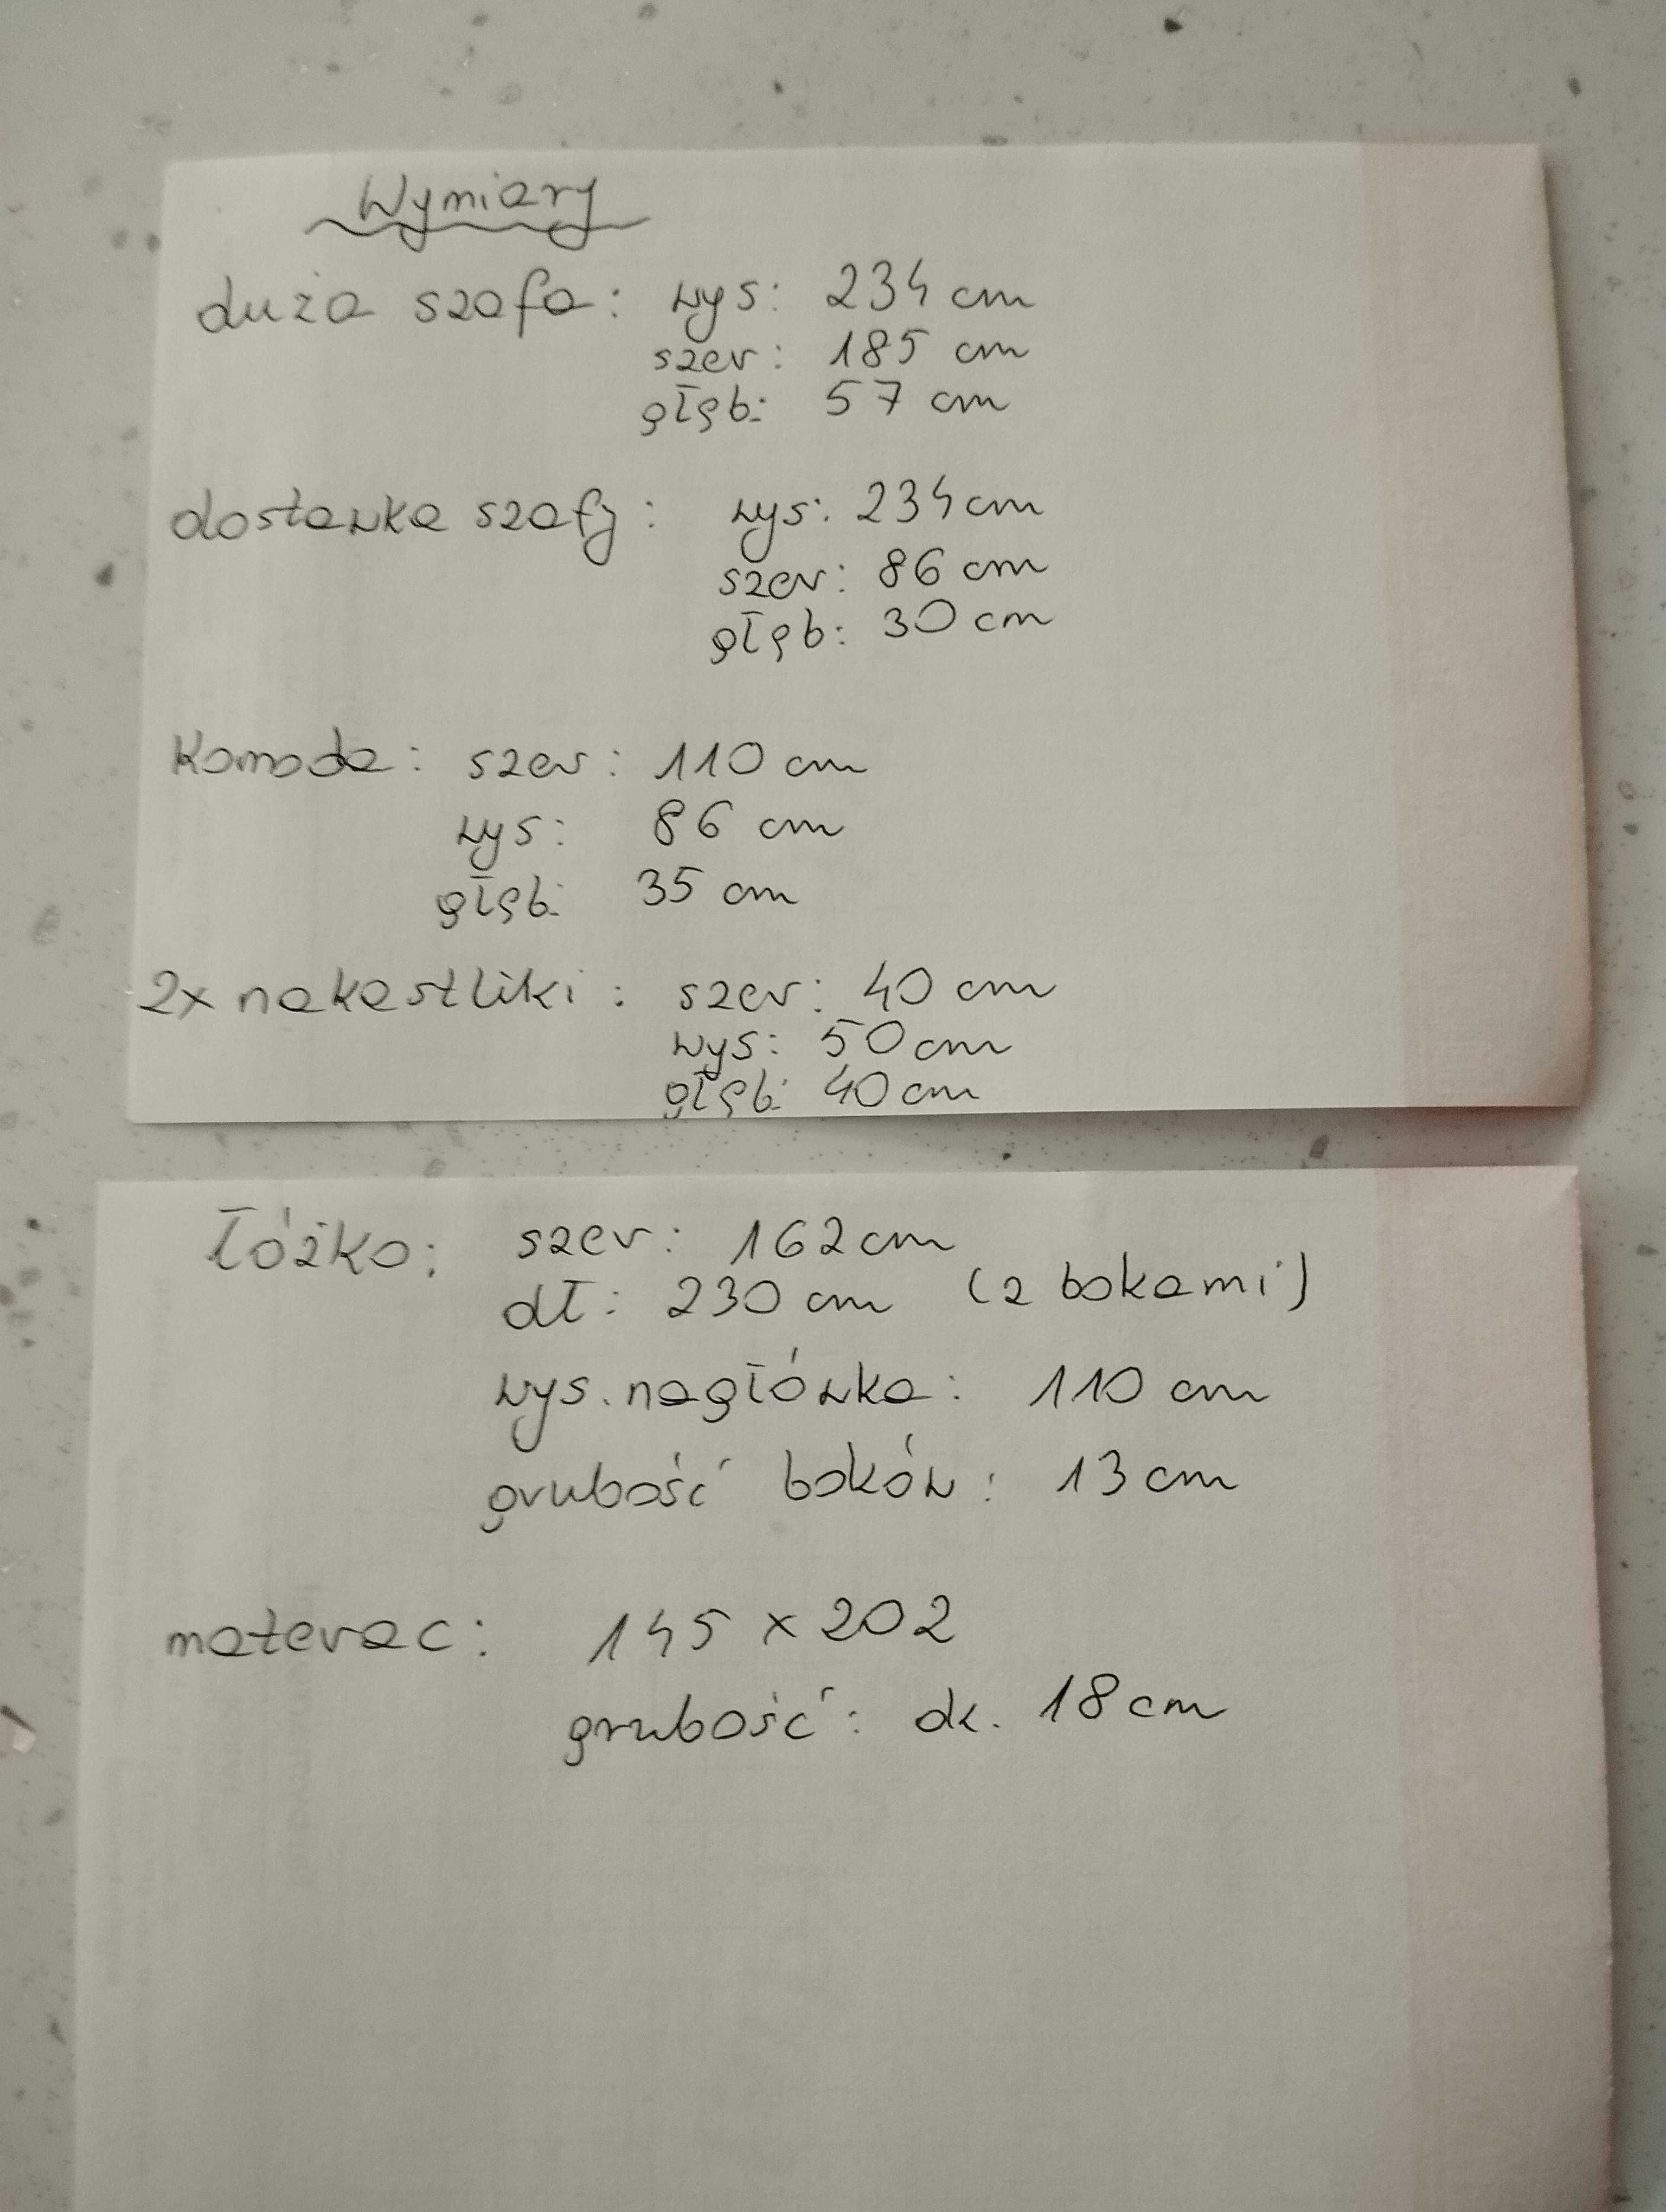 Wymiary
duża szafa: wys: 234 cm
szer: 185 cm
głęb: 57 cm
dostawka szafy: wys: 234 cm
szer: 86 cm
głęb: 30 cm
Komoda: szer: 110 cm
wys: 86 cm
głęb: 35 cm
2x nakastliki: szer: 40 cm
wys: 50 cm
głęb: 40 cm
łóżko: szer: 162 cm
dł: 230 cm (z bokami)
wys. nagłówka: 110 cm
grubość boków: 13 cm
materac: 145 x 202
grubość: ok. 18 cm